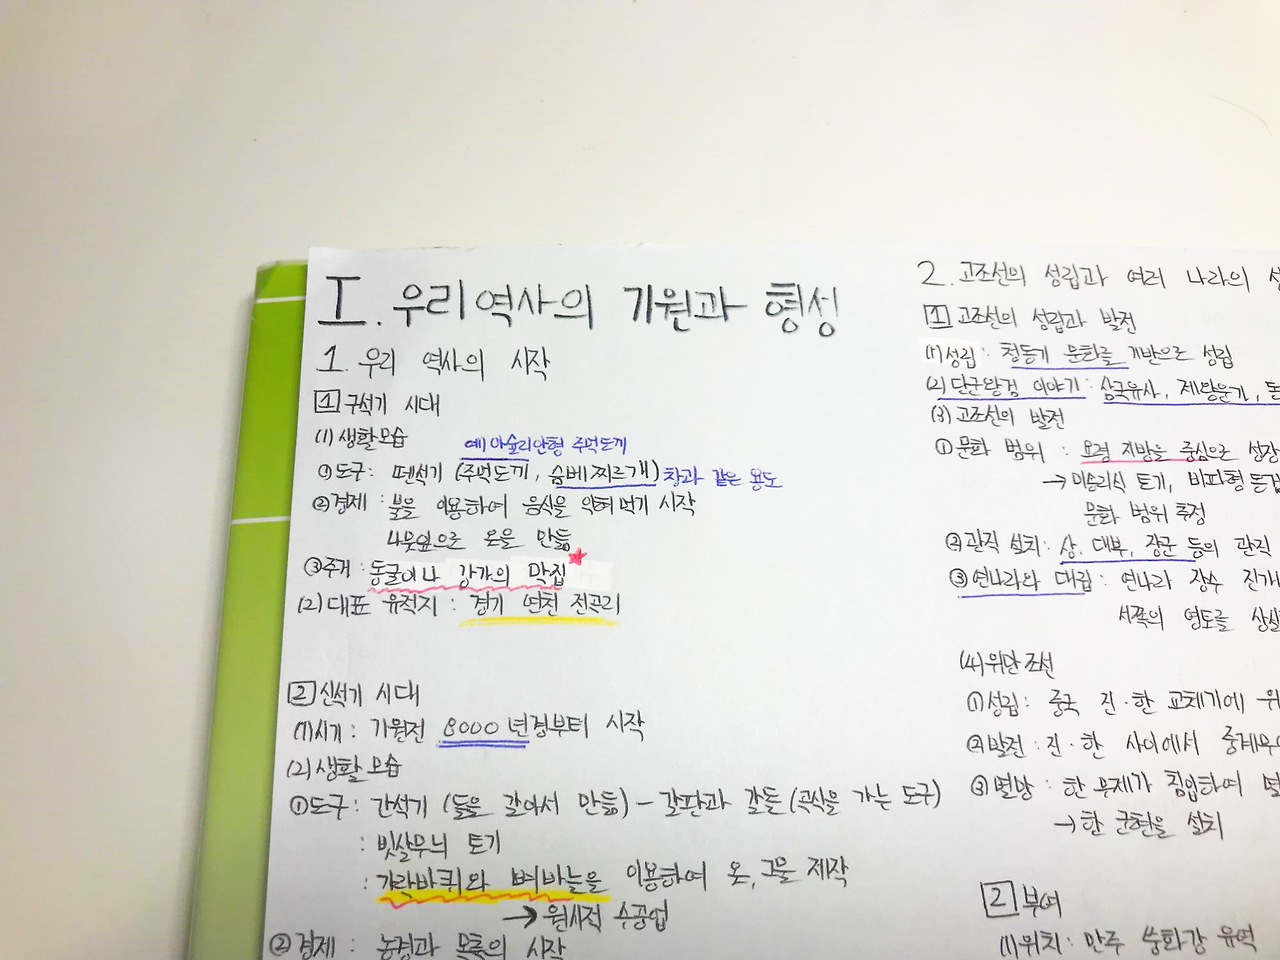 I. 우리역사의 기원과 형성
1. 우리 역사의 시작
1 구석기 시대
(1) 생활모습
예) 아슐리안형 주먹도끼
① 도구: 뗀석기 (주먹도끼, 슴베찌르개) 창과 같은 용도
② 경제 : 불을 이용하여 음식을 익혀 먹기 시작
나뭇잎으로 옷을 만듦
③ 주거 : 동굴이나 강가의 막집
(2) 대표 유적지 : 경기 연천 전곡리
2 신석기 시대
(1) 시기 : 기원전 8000년경부터 시작
(2) 생활모습
① 도구 : 간석기 (돌을 갈아서 만듦) - 갈판과 갈돌 (곡식을 가는 도구)
: 빗살무늬 토기
: 가락바퀴와 뼈바늘을 이용하여 옷, 그물 제작
→ 원시적 수공업
② 경제 : 농경과 목축의 시작
2. 고조선의 성립과 여러 나라의 성
1 고조선의 성립과 발전
(1) 성립 : 청동기 문화를 기반으로 성립
(2) 단군왕검 이야기 : 삼국유사, 제왕운기, 동
(3) 고조선의 발전
① 문화 범위 : 요령 지방을 중심으로 성장
→ 미송리식 토기, 비파형 동검
문화 범위 추정
② 관직 설치 : 상, 대부, 장군 등의 관직
③ 연나라와 대립 : 연나라 장수 진개
서쪽의 영토를 상실
(4) 위만 조선
① 성립 : 중국 진·한 교체기에 위
② 발전 : 진·한 사이에서 중계무
③ 멸망 : 한 무제가 침입하여 멸
→ 한 군현을 설치
2 부여
(1) 위치 : 만주 쑹화강 유역